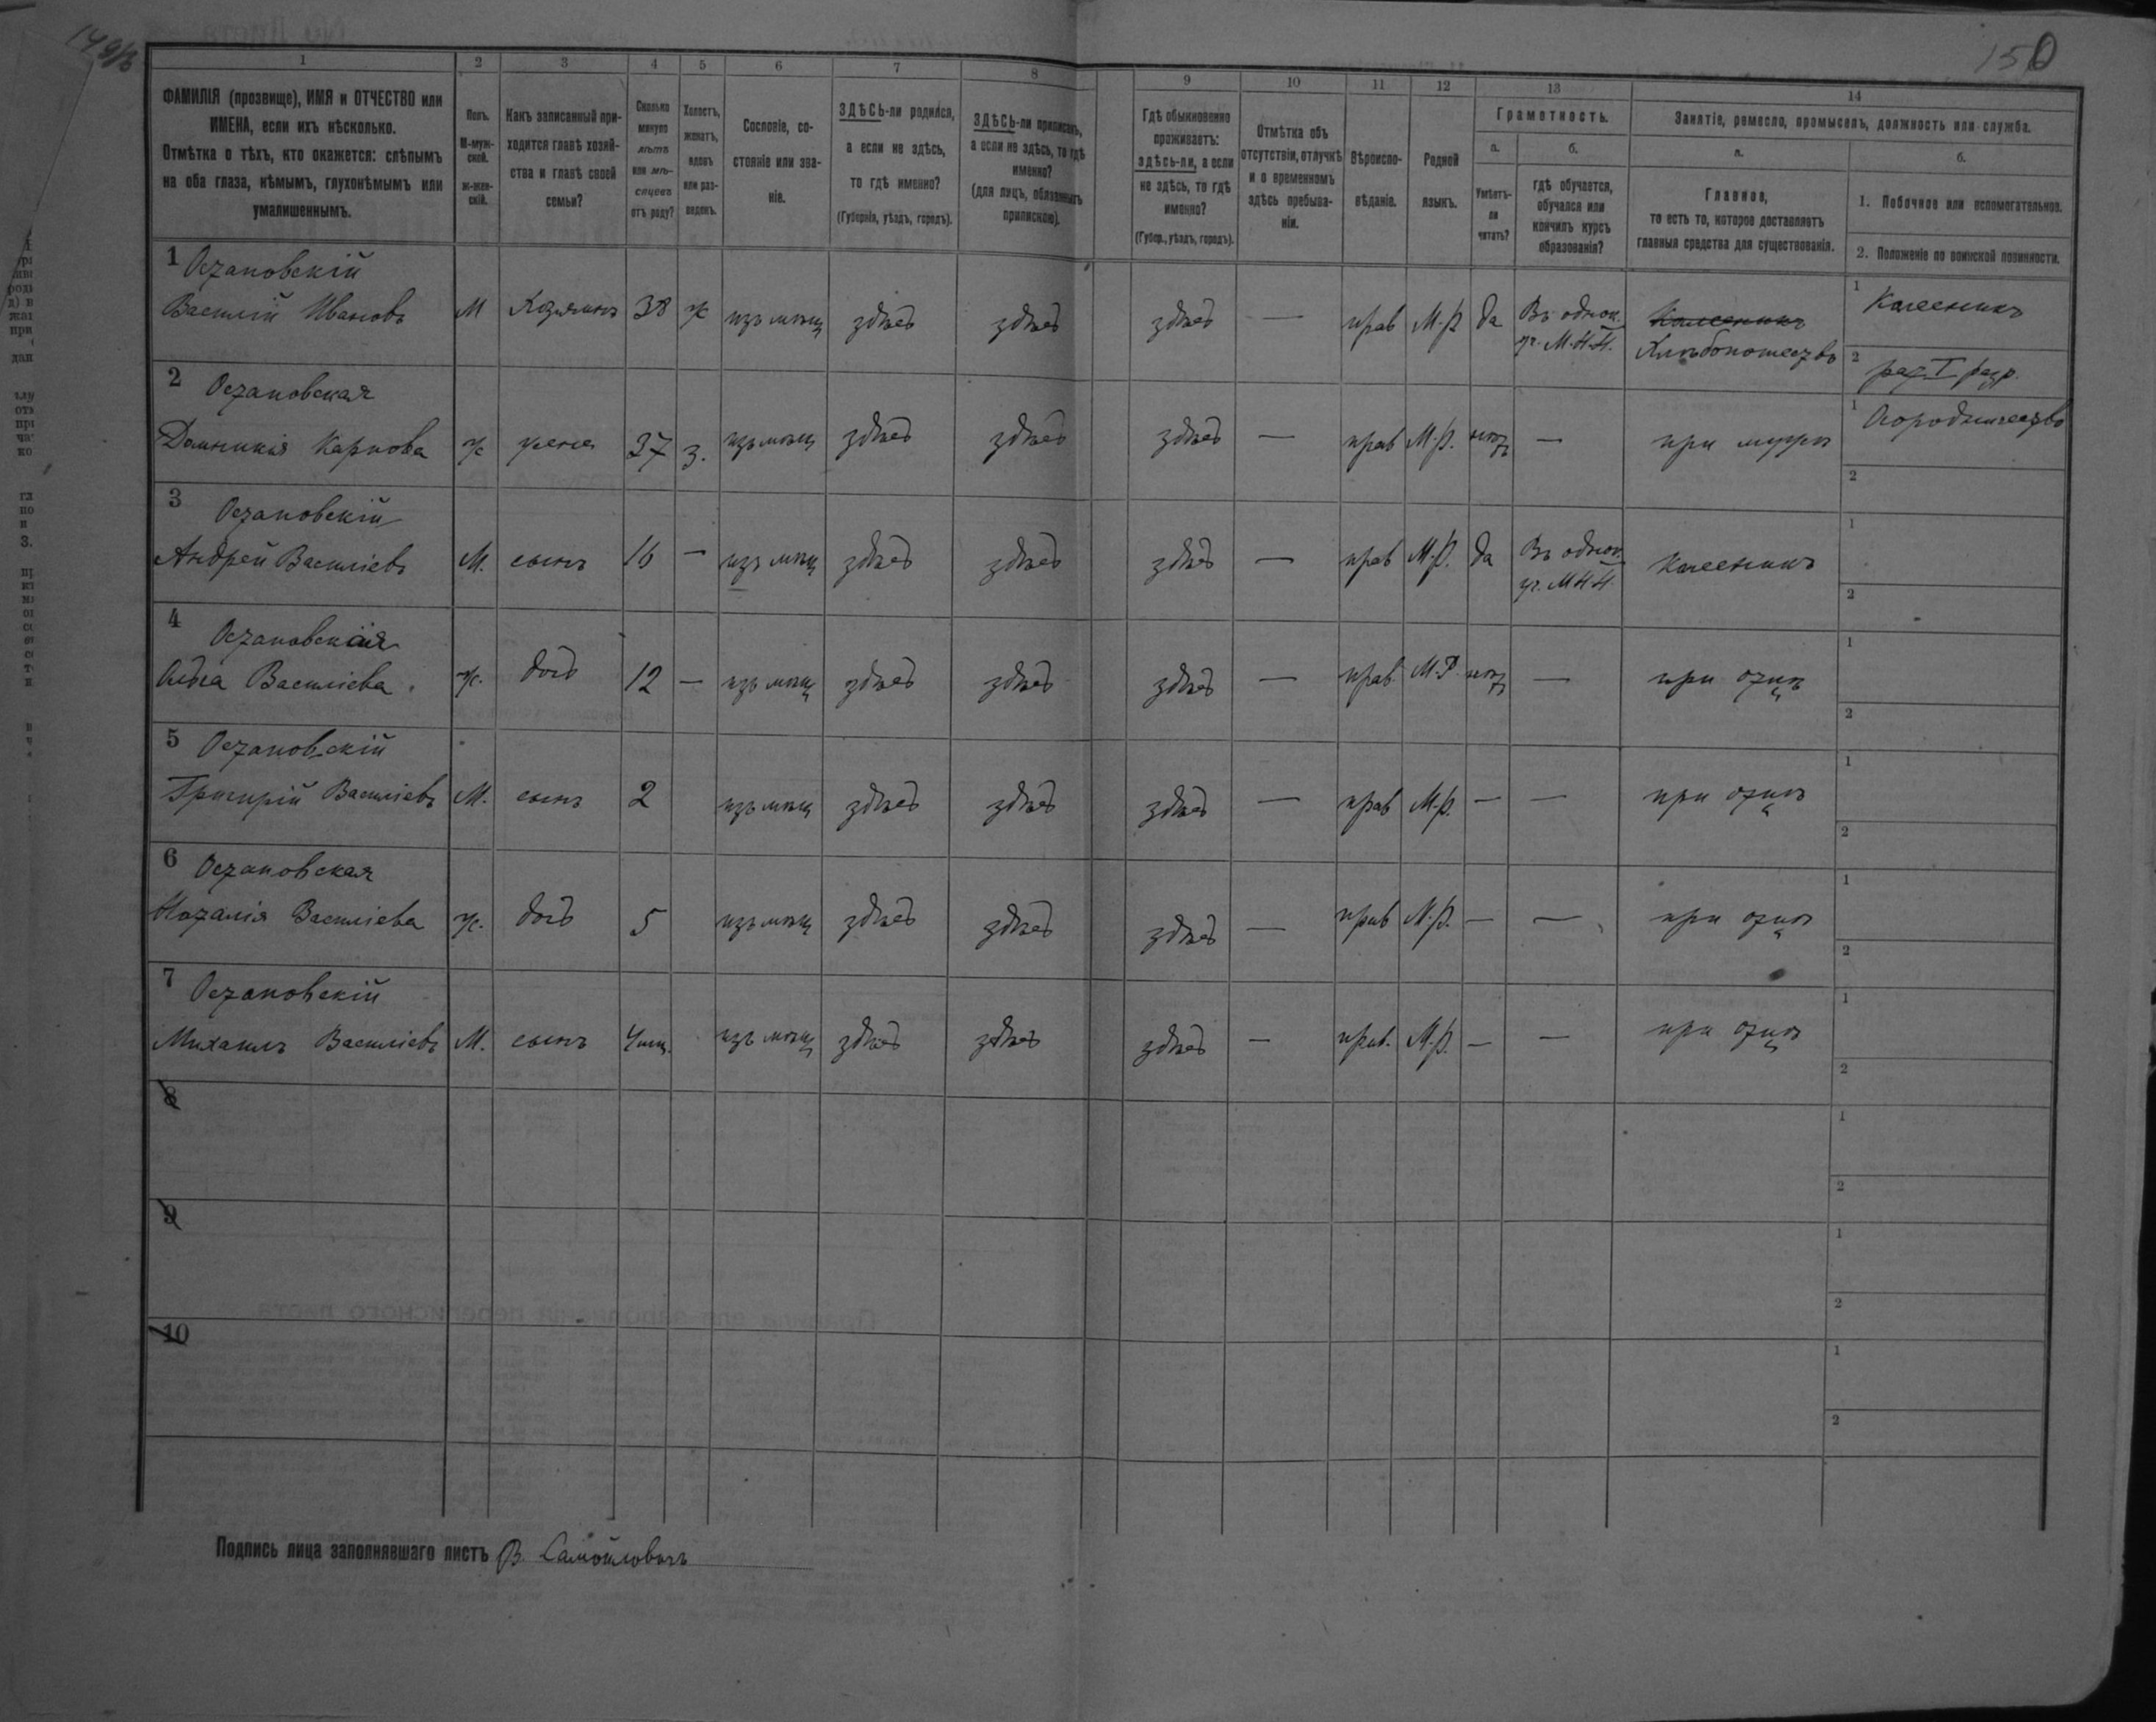 149/б
150
1 2 3 4 5 6 7 8 9 10 11 12 13 14
ФАМИЛІЯ (прозвище), ИМЯ и ОТЧЕСТВО или
ИМЕНА, если ихъ нѣсколько.
Отмѣтка о тѣхъ, кто окажется: слѣпымъ
на оба глаза, нѣмымъ, глухонѣмымъ или
умалишеннымъ.
Полъ.
М-муж-
ской.
ж-жен-
скій.
Какъ записанный при-
ходится главѣ хозяй-
ства и главѣ своей
семьи?
Сколько
минуло
лѣтъ
или мѣ-
сяцевъ
отъ роду?
Холостъ,
женатъ,
вдовъ
или раз-
веденъ.
Сословіе, со-
стояніе или зва-
ніе.
ЗДѢСЬ-ли родился,
а если не здѣсь,
то гдѣ именно?
(Губернія, уѣздъ, городъ).
ЗДѢСЬ-ли приписанъ,
а если не здѣсь, то гдѣ
именно?
(для лицъ, обязанныхъ
припискою).
Гдѣ обыкновенно
проживаетъ:
здѣсь-ли, а если
не здѣсь, то гдѣ
именно?
(Губер., уѣздъ, городъ).
Отмѣтка объ
отсутствіи, отлучкѣ
и о временномъ
здѣсь пребыва-
ніи.
Вѣроиспо-
вѣданіе.
Родной
языкъ.
Грамотность.
а. б.
Умѣетъ-
ли
читать?
гдѣ обучается,
обучался или
кончилъ курсъ
образованія?
Занятіе, ремесло, промыселъ, должность или служба.
а. б.
Главное,
то есть то, которое доставляетъ
главныя средства для существованія.
1. Побочное или вспомогательное.
2. Положеніе по воинской повинности.
1 Остановскій
Василій Ивановъ М Хозяинъ 38 ж изъ мѣщ здѣсь здѣсь здѣсь — прав М.Р. да Въ однок. уч. М.Н.П. Колесникъ Хлѣбопашество 1 Колесникъ
2 рат. I разр.
2 Остановская
Домникія Карпова ж жена 37 з. изъ мѣщ здѣсь здѣсь здѣсь — прав М.Р. нѣтъ — при мужѣ 1 Огородничество
2
3 Остановскій
Андрей Василіевъ М. сынъ 16 — изъ мѣщ здѣсь здѣсь здѣсь — прав М.Р. да Въ однок. уч. М.Н.П. Колесникъ 1
2
4 Остановская
Ольга Василіева ж. дочь 12 — изъ мѣщ здѣсь здѣсь здѣсь — прав. М.Р. нѣтъ — при отцѣ 1
2
5 Остановскій
Григорій Василіевъ М. сынъ 2 изъ мѣщ здѣсь здѣсь здѣсь — прав М.Р. — — при отцѣ 1
2
6 Остановская
Наталія Василіева ж. дочь 5 изъ мѣщ здѣсь здѣсь здѣсь — прав М.Р. — — при отцѣ 1
2
7 Остановскій
Михаилъ Василіевъ М. сынъ 4 мц. изъ мѣщ здѣсь здѣсь здѣсь — прав. М.Р. — — при отцѣ 1
2
8 1
2
9 1
2
10 1
2
Подпись лица заполнявшаго листъ В. Самойловичъ